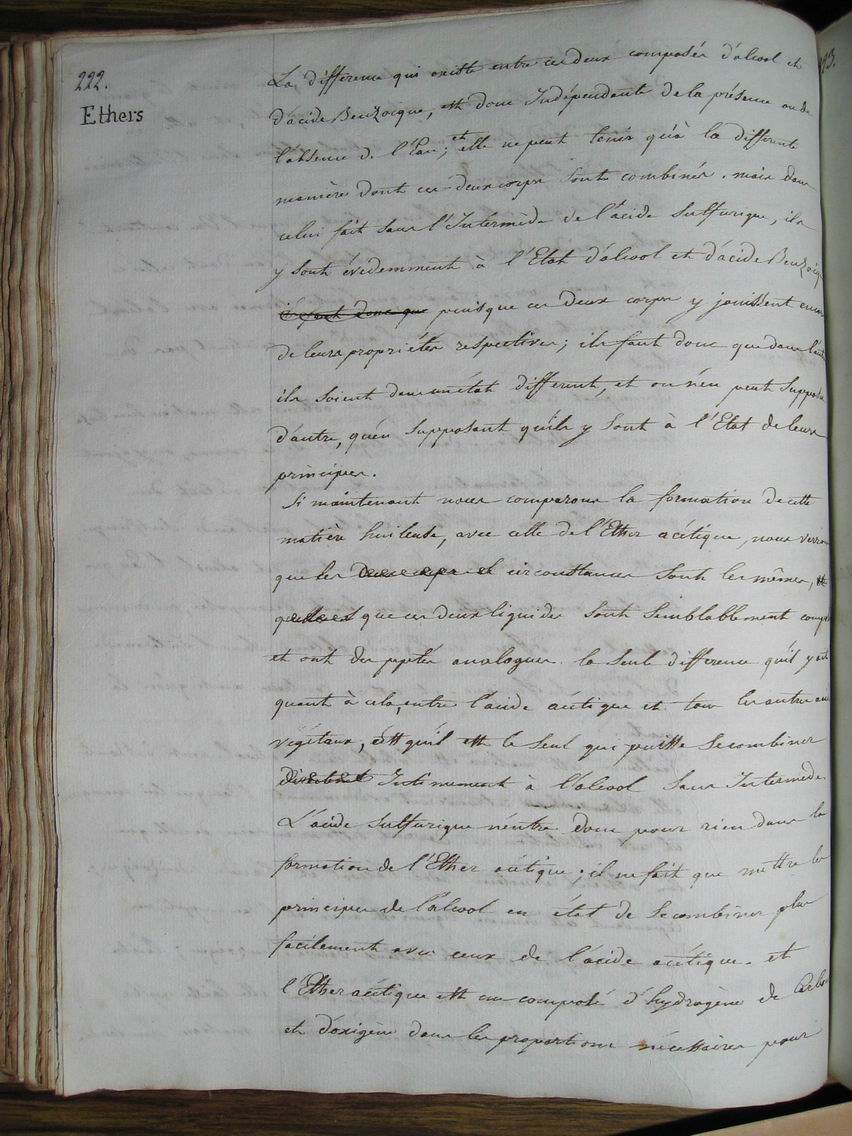 222.
Ethers
La difference qui existe entre ces deux composés d'alcool et
d'acide Benzoique, est donc Indépendante de la présence ou de
l'absence de l'Eau; et elle ne peut tenir qu'à la differente
manière dont ces deux corps sont combinés. mais dans
celui fait sans l'Intermède de l'acide Sulfurique, ils
y sont évidemment à l'Etat d'alcool et d'acide Benzoique
il faut donc que puisque ces Deux corps y jouissent encore
de leurs proprietés respectives; il faut donc que dans l'autre
ils soient dans un état different, et on n'en peut supposer
d'autre, qu'en supposant qu'ils y sont à l'Etat de leurs
principes.
Si maintenant nous comparons la formation de cette
matière huileuse, avec celle de l'Ether acétique, nous verrons
que les circonstances sont les mêmes,
que ces deux liquides sont semblablement composés
et ont des pptés analogues. la seule difference qu'il y ait
quant à cela, entre l'acide acétique et tous les autres acides
végétaux, est qu'il est le seul qui puisse se combiner
Intimement à l'alcool sans Intermède.
L'acide Sulfurique n'entre donc pour rien dans la
formation de l'Ether acétique; il ne fait que mettre les
principes de l'alcool en état de se combiner plus
facilement avec ceux de l'acide acétique. et
l'Ether acétique est un composé d'hydrogène de Carbone
et d'oxigène dans les proportions nécessaires pour